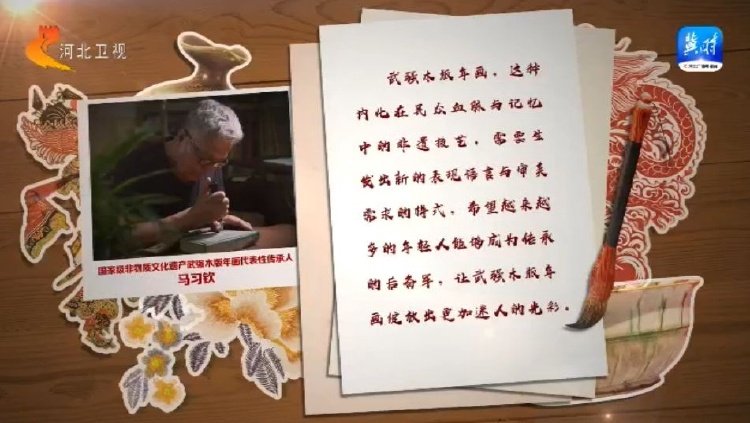 河北卫视
冀时
国家级非物质文化遗产武强木版年画代表性传承人
马习钦
武强木版年画，这种
内化在民众血脉与记忆
中的非遗技艺，需要生
发出新的表现语言与审美
需求的样式，希望越来越
多的年轻人能够成为传承
的后备军，让武强木版年
画绽放出更加迷人的光彩。